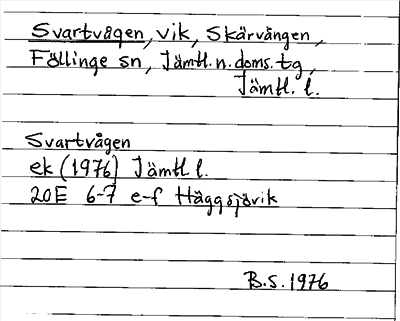 Svartvågen, vik, Skärvången,
Föllinge sn, Jämtl.n.doms.tg,
Jämtl. l.
Svartvågen
ek (1976) Jämtl l.
20E 6-7 e-f Häggsjövik
B.S. 1976